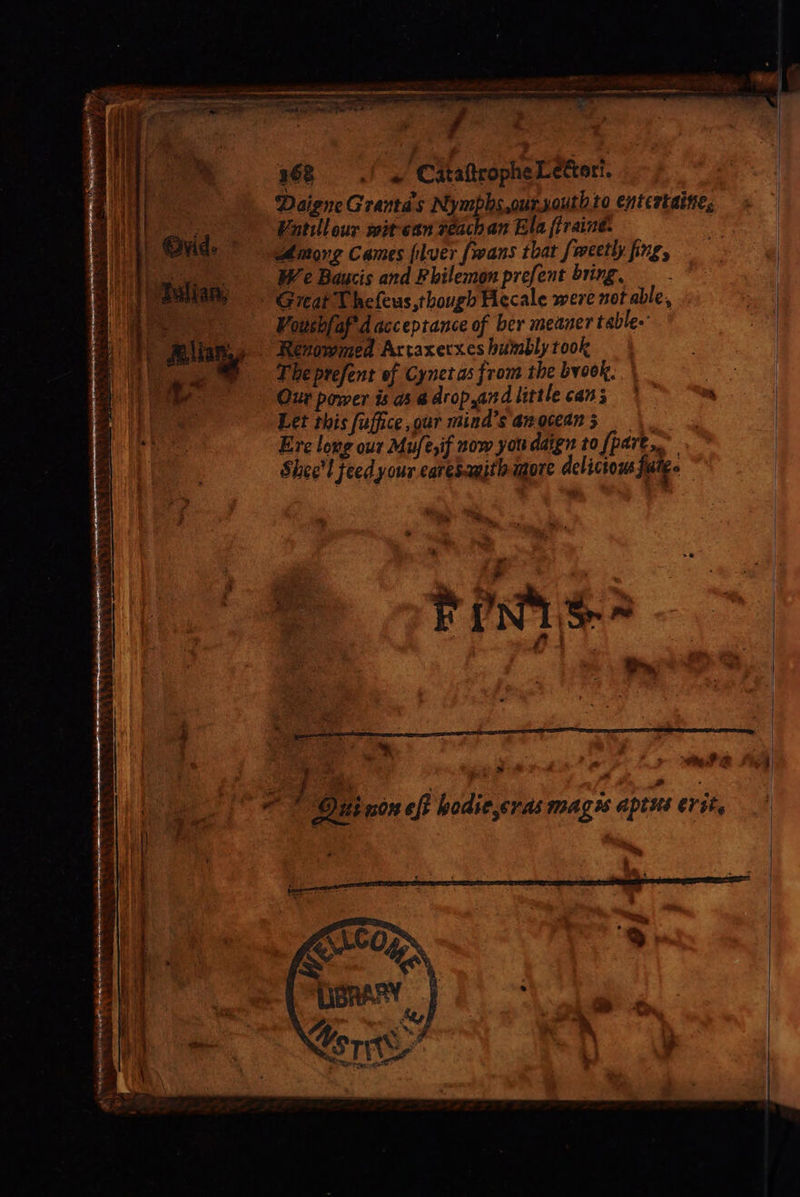 368 Cataſtrophe Lectori.
Daigne Granta's Nymphs, our youth to entertaine,
Vntill our wit can reach an Ela ſtraine:
Ovid. Among Cames ſilver ſwans that ſweetly ſing,
We Baucis and Philemon preſent bring.
Iulian. Great Theſeus, though Hecale were not able,
Vouchſaf'd acceptance of her meaner table.
Ælian. Renowmed Artaxerxes humbly took
The preſent of Cynetas from the brook.
Our power is as a drop, and little can;
Let this ſuffice, our mind's an ocean;
Ere long our Muſe, if now you daign to ſpare,
Shee'l feed your eares with more delicious
FINIS.
Qui non eſt hodie, cras magis aptus erit.
WELLCOME
LIBRARY